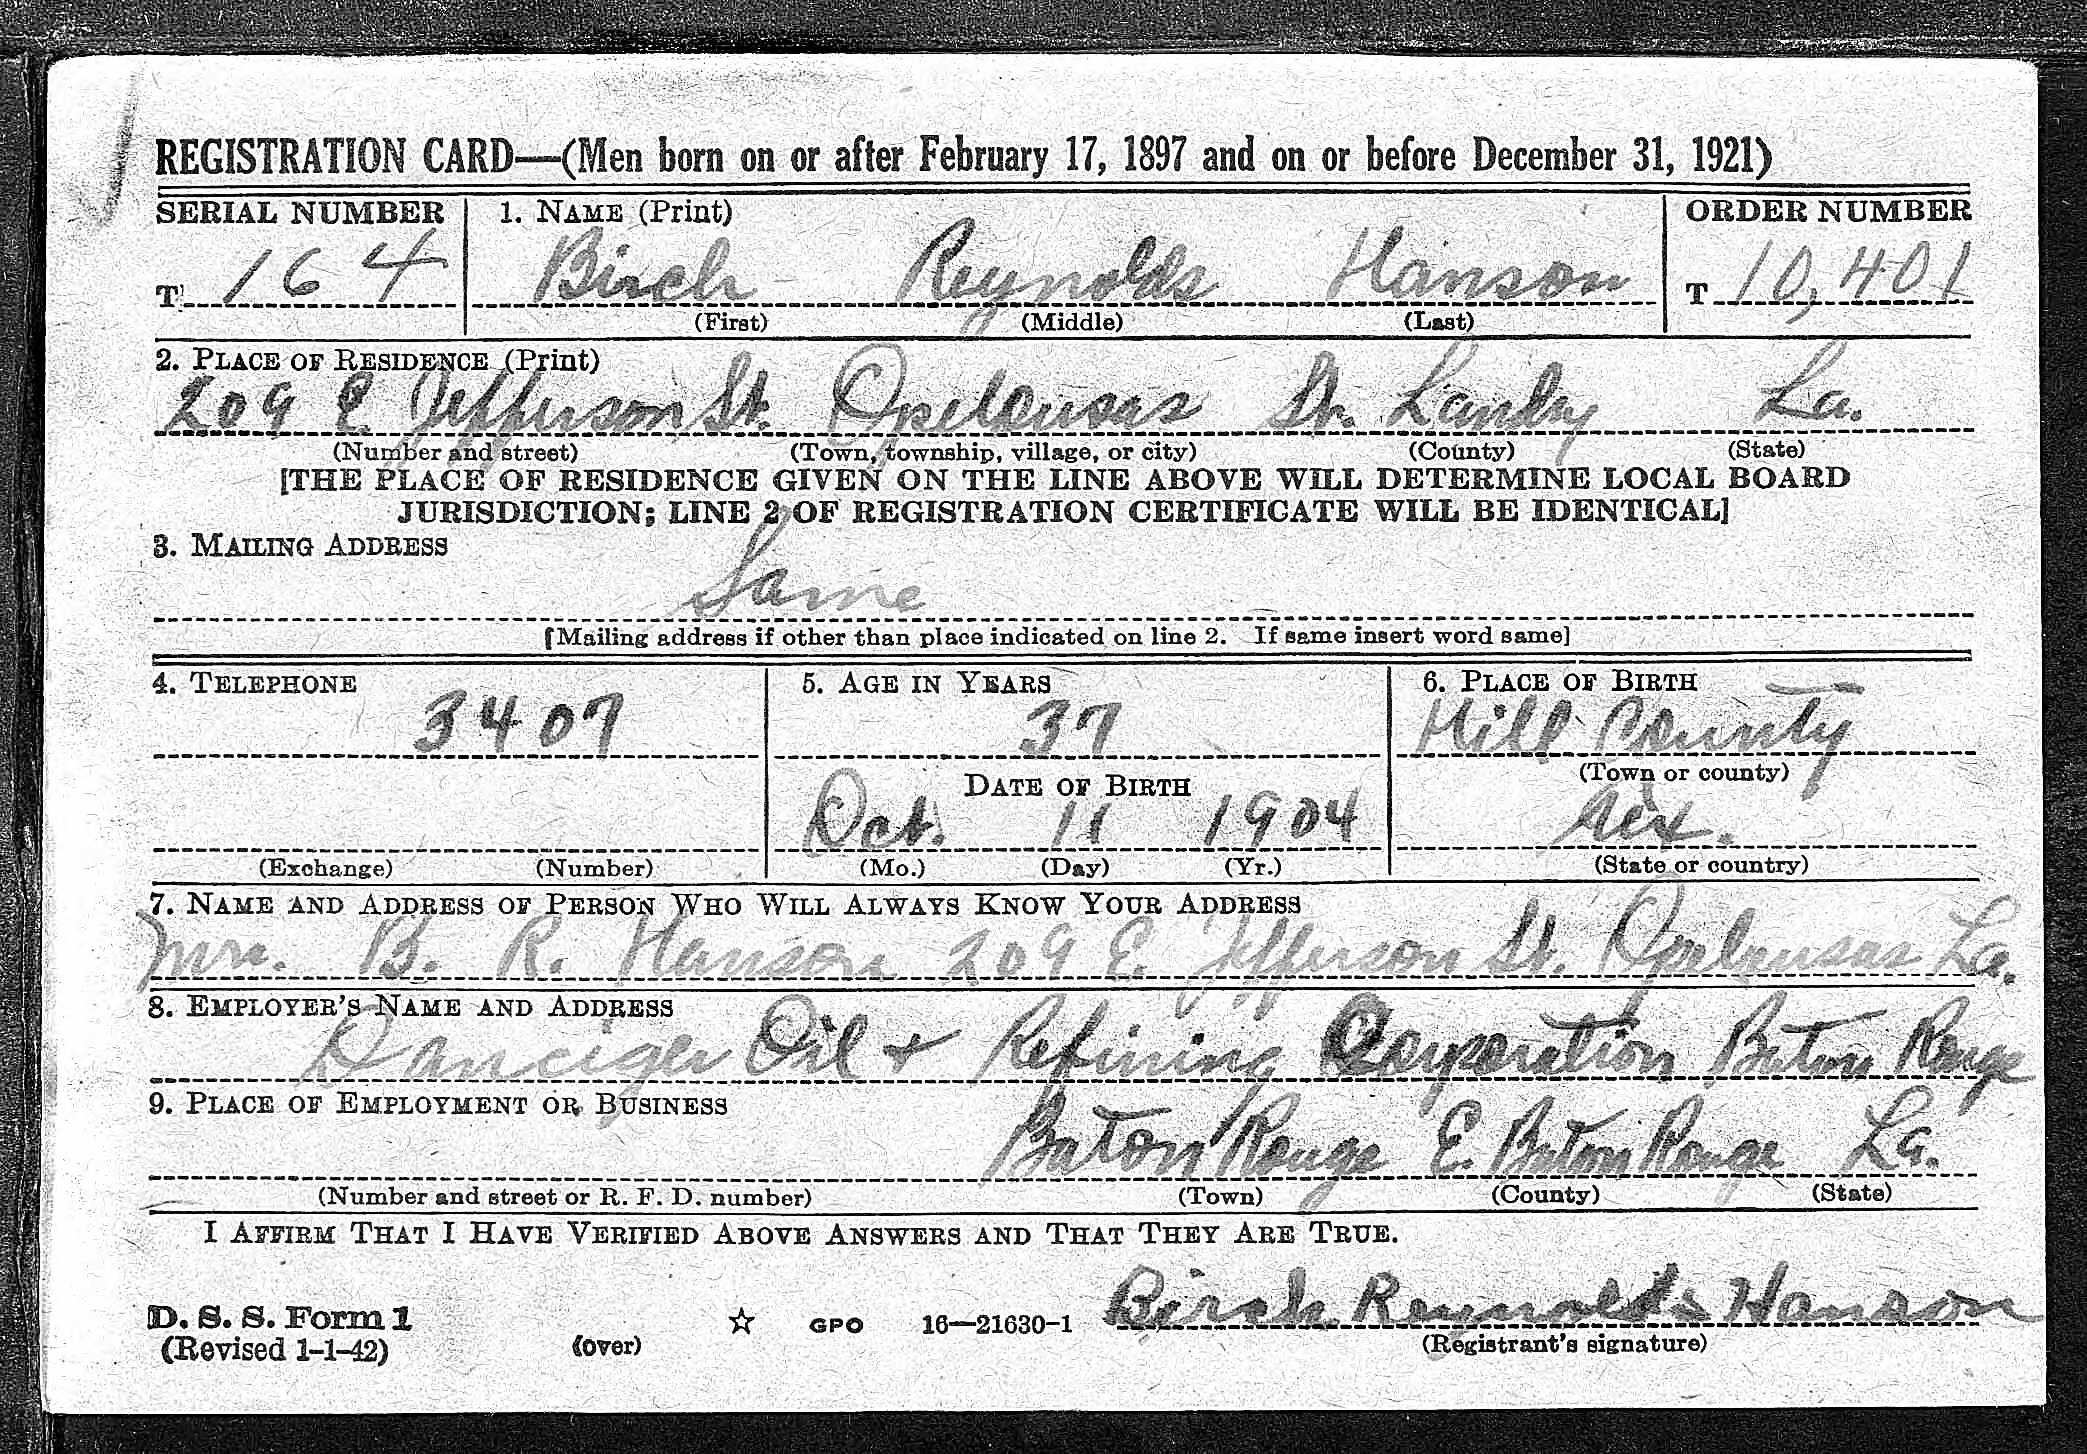 REGISTRATION CARD—(Men born on or after February 17, 1897 and on or before December 31, 1921)
SERIAL NUMBER 1. NAME (Print) ORDER NUMBER
T 164 Birch Reynolds Hanson T 10,401
(First) (Middle) (Last)
2. PLACE OF RESIDENCE (Print)
209 E. Jefferson St. Opelousas St. Landry La.
(Number and street) (Town, township, village, or city) (County) (State)
[THE PLACE OF RESIDENCE GIVEN ON THE LINE ABOVE WILL DETERMINE LOCAL BOARD
JURISDICTION; LINE 2 OF REGISTRATION CERTIFICATE WILL BE IDENTICAL]
3. MAILING ADDRESS
Same
[Mailing address if other than place indicated on line 2. If same insert word same]
4. TELEPHONE 5. AGE IN YEARS 6. PLACE OF BIRTH
3407 37 Hill County
DATE OF BIRTH (Town or county)
Oct. 11 1904 Tex.
(Exchange) (Number) (Mo.) (Day) (Yr.) (State or country)
7. NAME AND ADDRESS OF PERSON WHO WILL ALWAYS KNOW YOUR ADDRESS
Mrs. B. R. Hanson 209 E. Jefferson St. Opelousas La.
8. EMPLOYER'S NAME AND ADDRESS
Danciger Oil + Refining Corporation Baton Rouge
9. PLACE OF EMPLOYMENT OR BUSINESS
Baton Rouge E. Baton Rouge La.
(Number and street or R. F. D. number) (Town) (County) (State)
I AFFIRM THAT I HAVE VERIFIED ABOVE ANSWERS AND THAT THEY ARE TRUE.
D. S. S. Form 1
(Revised 1-1-42) (over) ☆ GPO 16—21630-1 Birch Reynolds Hanson
(Registrant's signature)